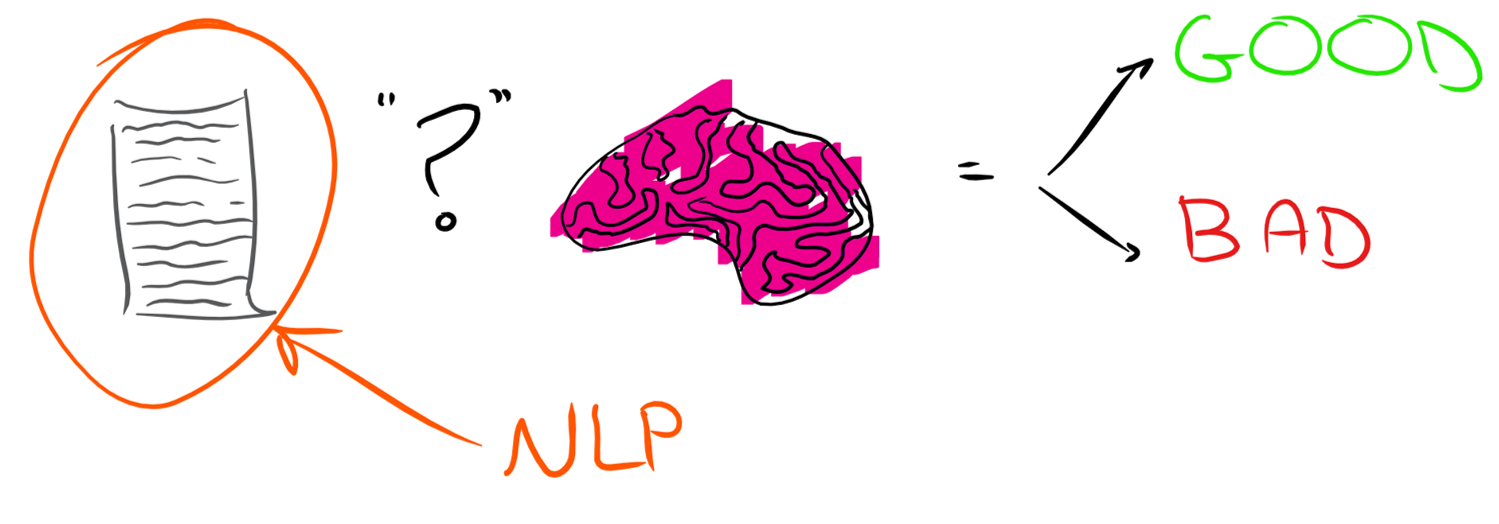 "?"
=
GOOD
BAD
NLP